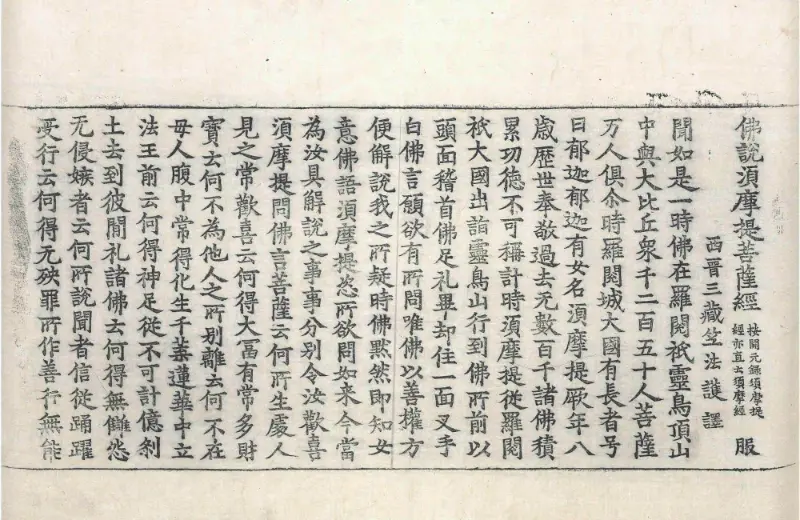 佛說須摩提菩薩經 按開元錄須摩提
經亦直云須摩經 服
西晉三藏竺法護譯
聞如是一時佛在羅閱祇靈鳥頂山
中與大比丘衆千二百五十人菩薩
万人俱尒時羅閱城大國有長者号
曰郁迦郁迦有女名須摩提厥年八
歲歷世奉敬過去无數百千諸佛積
累功德不可稱計時須摩提從羅閱
祇大國出詣靈鳥山行到佛所前以
頭面稽首佛足礼畢却住一面叉手
白佛言願欲有所問唯佛以善權方
便解說我之所疑時佛黙然即知女
意佛語須摩提恣所欲問如來今當
為汝具解說之事事分別令汝歡喜
須摩提問佛言菩薩云何所生處人
見之常歡喜云何得大冨有常多財
寶云何不為他人之所別離云何不在
母人腹中常得化生千葉蓮華中立
法王前云何得神足從不可計億剎
土去到彼間礼諸佛云何得無讎怨
无侵嫉者云何所說聞者信從踊躍
受行云何得无殃罪所作善行無能